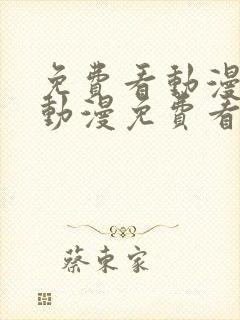 免費看動漫
動漫免費看
蔡東家